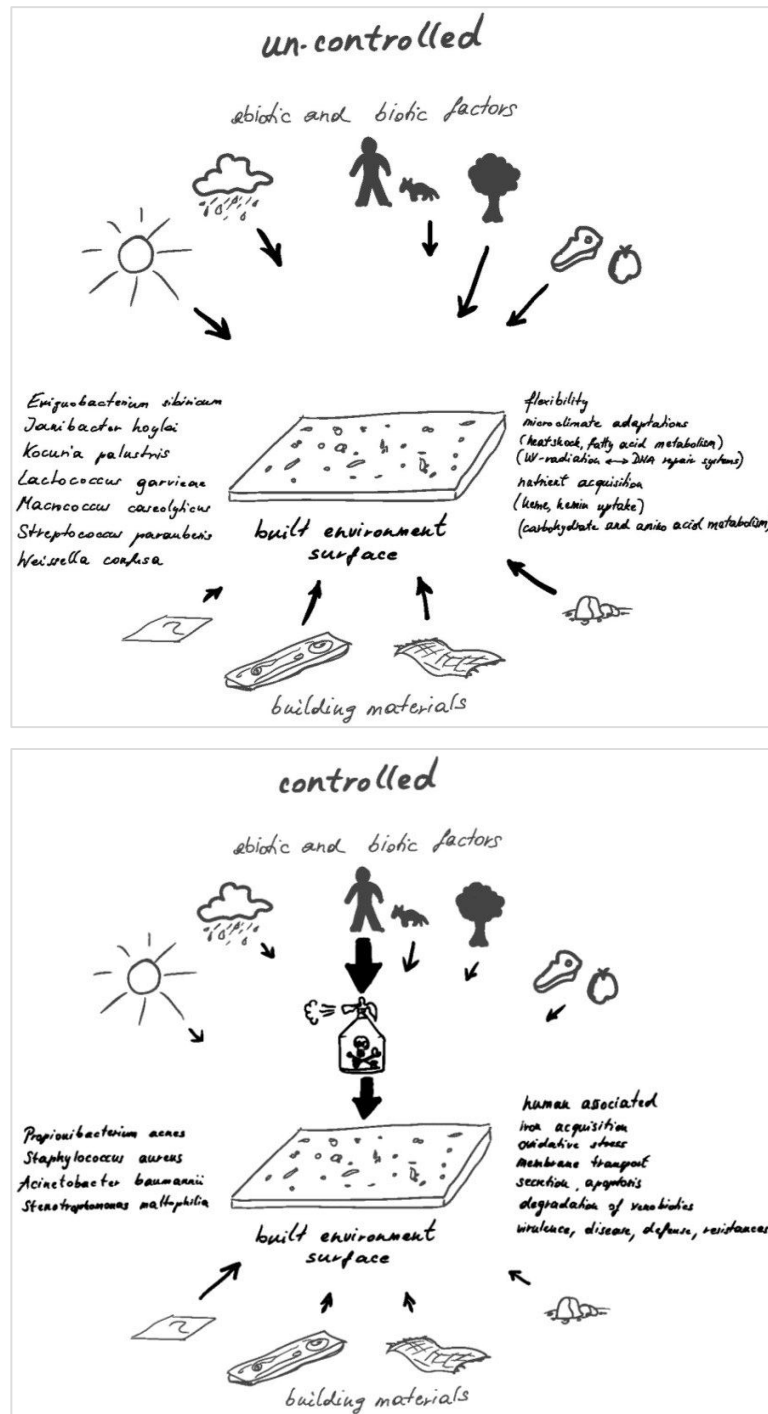 un-controlled
abiotic and biotic factors
Exiguobacterium sibiricum
Janibacter hoylei
Kocuria palustris
Lactococcus garvieae
Macrococcus caseolyticus
Streptococcus parauberis
Weissella confusa
flexibility
microclimate adaptations
(heatshock, fatty acid metabolism)
(UV-radiation ↔ DNA repair systems)
nutrient acquisition
(heme, hemin uptake)
(carbohydrate and amino acid metabolism)
built environment
surface
building materials
controlled
abiotic and biotic factors
Propionibacterium acnes
Staphylococcus aureus
Acinetobacter baumannii
Stenotrophomonas maltophilia
human associated
iron acquisition
oxidative stress
membrane transport
secretion, apoptosis
degradation of xenobiotics
virulence, disease, defense, resistances
built environment
surface
building materials